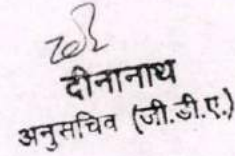 दीनानाथ
अनुसचिव (जी.डी.ए.)